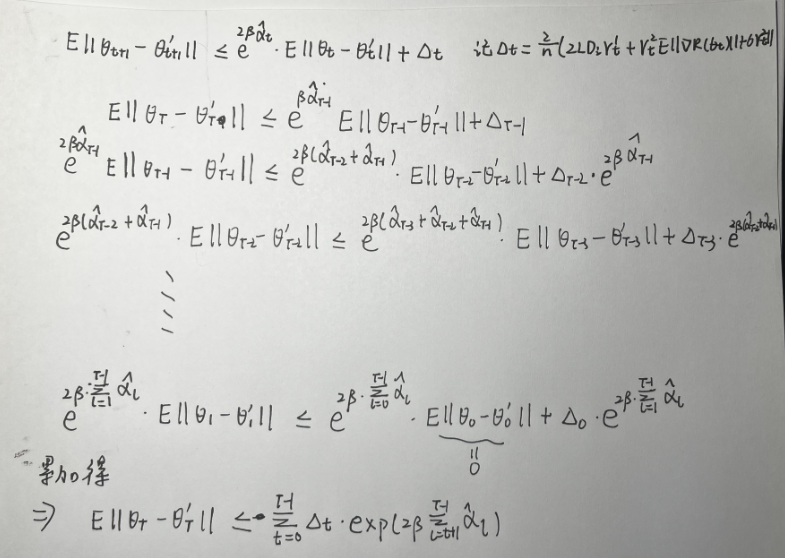 E||θt+1 − θ't+1|| ≤ e^{2βα̂t} · E||θt − θ't|| + Δt 记 Δt = 2/n (2LD2 γt + γt² E||∇R(θt)||+
E||θT − θ'T|| ≤ e^{βα̂T-1} E||θT-1 − θ'T-1|| + ΔT-1
e^{2βα̂T-1} E||θT-1 − θ'T-1|| ≤ e^{2β(α̂T-2 + α̂T-1)} · E||θT-2 − θ'T-2|| + ΔT-2 · e^{2βα̂T-1}
e^{2β(α̂T-2 + α̂T-1)} · E||θT-2 − θ'T-2|| ≤ e^{2β(α̂T-3 + α̂T-2 + α̂T-1)} · E||θT-3 − θ'T-3|| + ΔT-3 · e^{2β(α̂T-2+α̂T-1)}
e^{2β·Σ_{i=1}^{T-1} α̂i} · E||θ1 − θ'1|| ≤ e^{2β·Σ_{i=0}^{T-1} α̂i} · E||θ0 − θ'0|| + Δ0 · e^{2β·Σ_{i=1}^{T-1} α̂i}
=
0
累加得
⇒ E||θT − θ'T|| ≤ Σ_{t=0}^{T-1} Δt · exp(2β Σ_{i=t+1}^{T-1} α̂i)